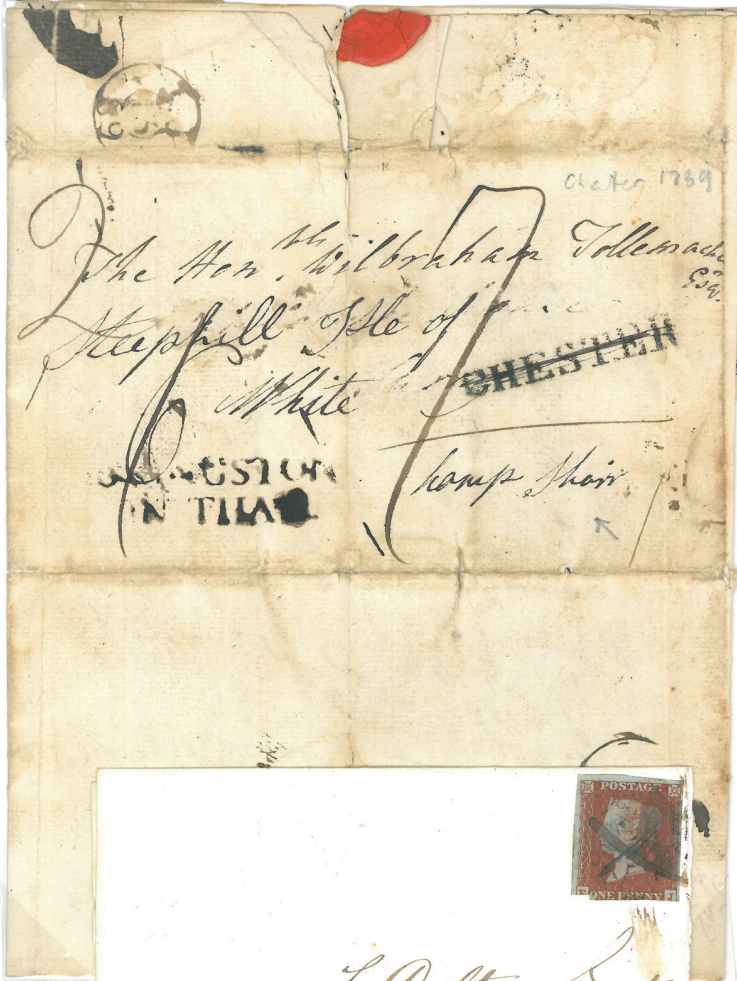 Chester 1789
The Honble Wilbraham Tollemache
Esqr.
Steephill Isle of
White
CHESTER
KINGSTON
ON THA
hamp Shair
POSTAGE
ONE PENNY